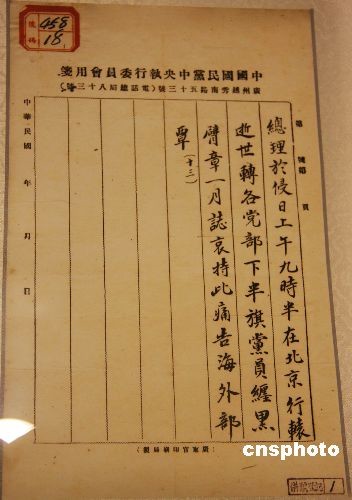 號碼
458
18
中國國民黨中央執行委員會用箋
廣州越秀南路五十三號(電話總局八十三號)
第 號第 頁
總理於侵日上午九時半在北京行轅
逝世轉各党部下半旗黨員纏黑
臂章一月誌哀特此痛告海外部
覃(十三)
中華民國 年 月 日
(廣東官印刷局製)
cnsphoto
1